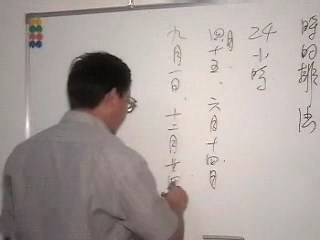 時的 法
24小時
四月十五、六月十四日
九月一日、十二月廿